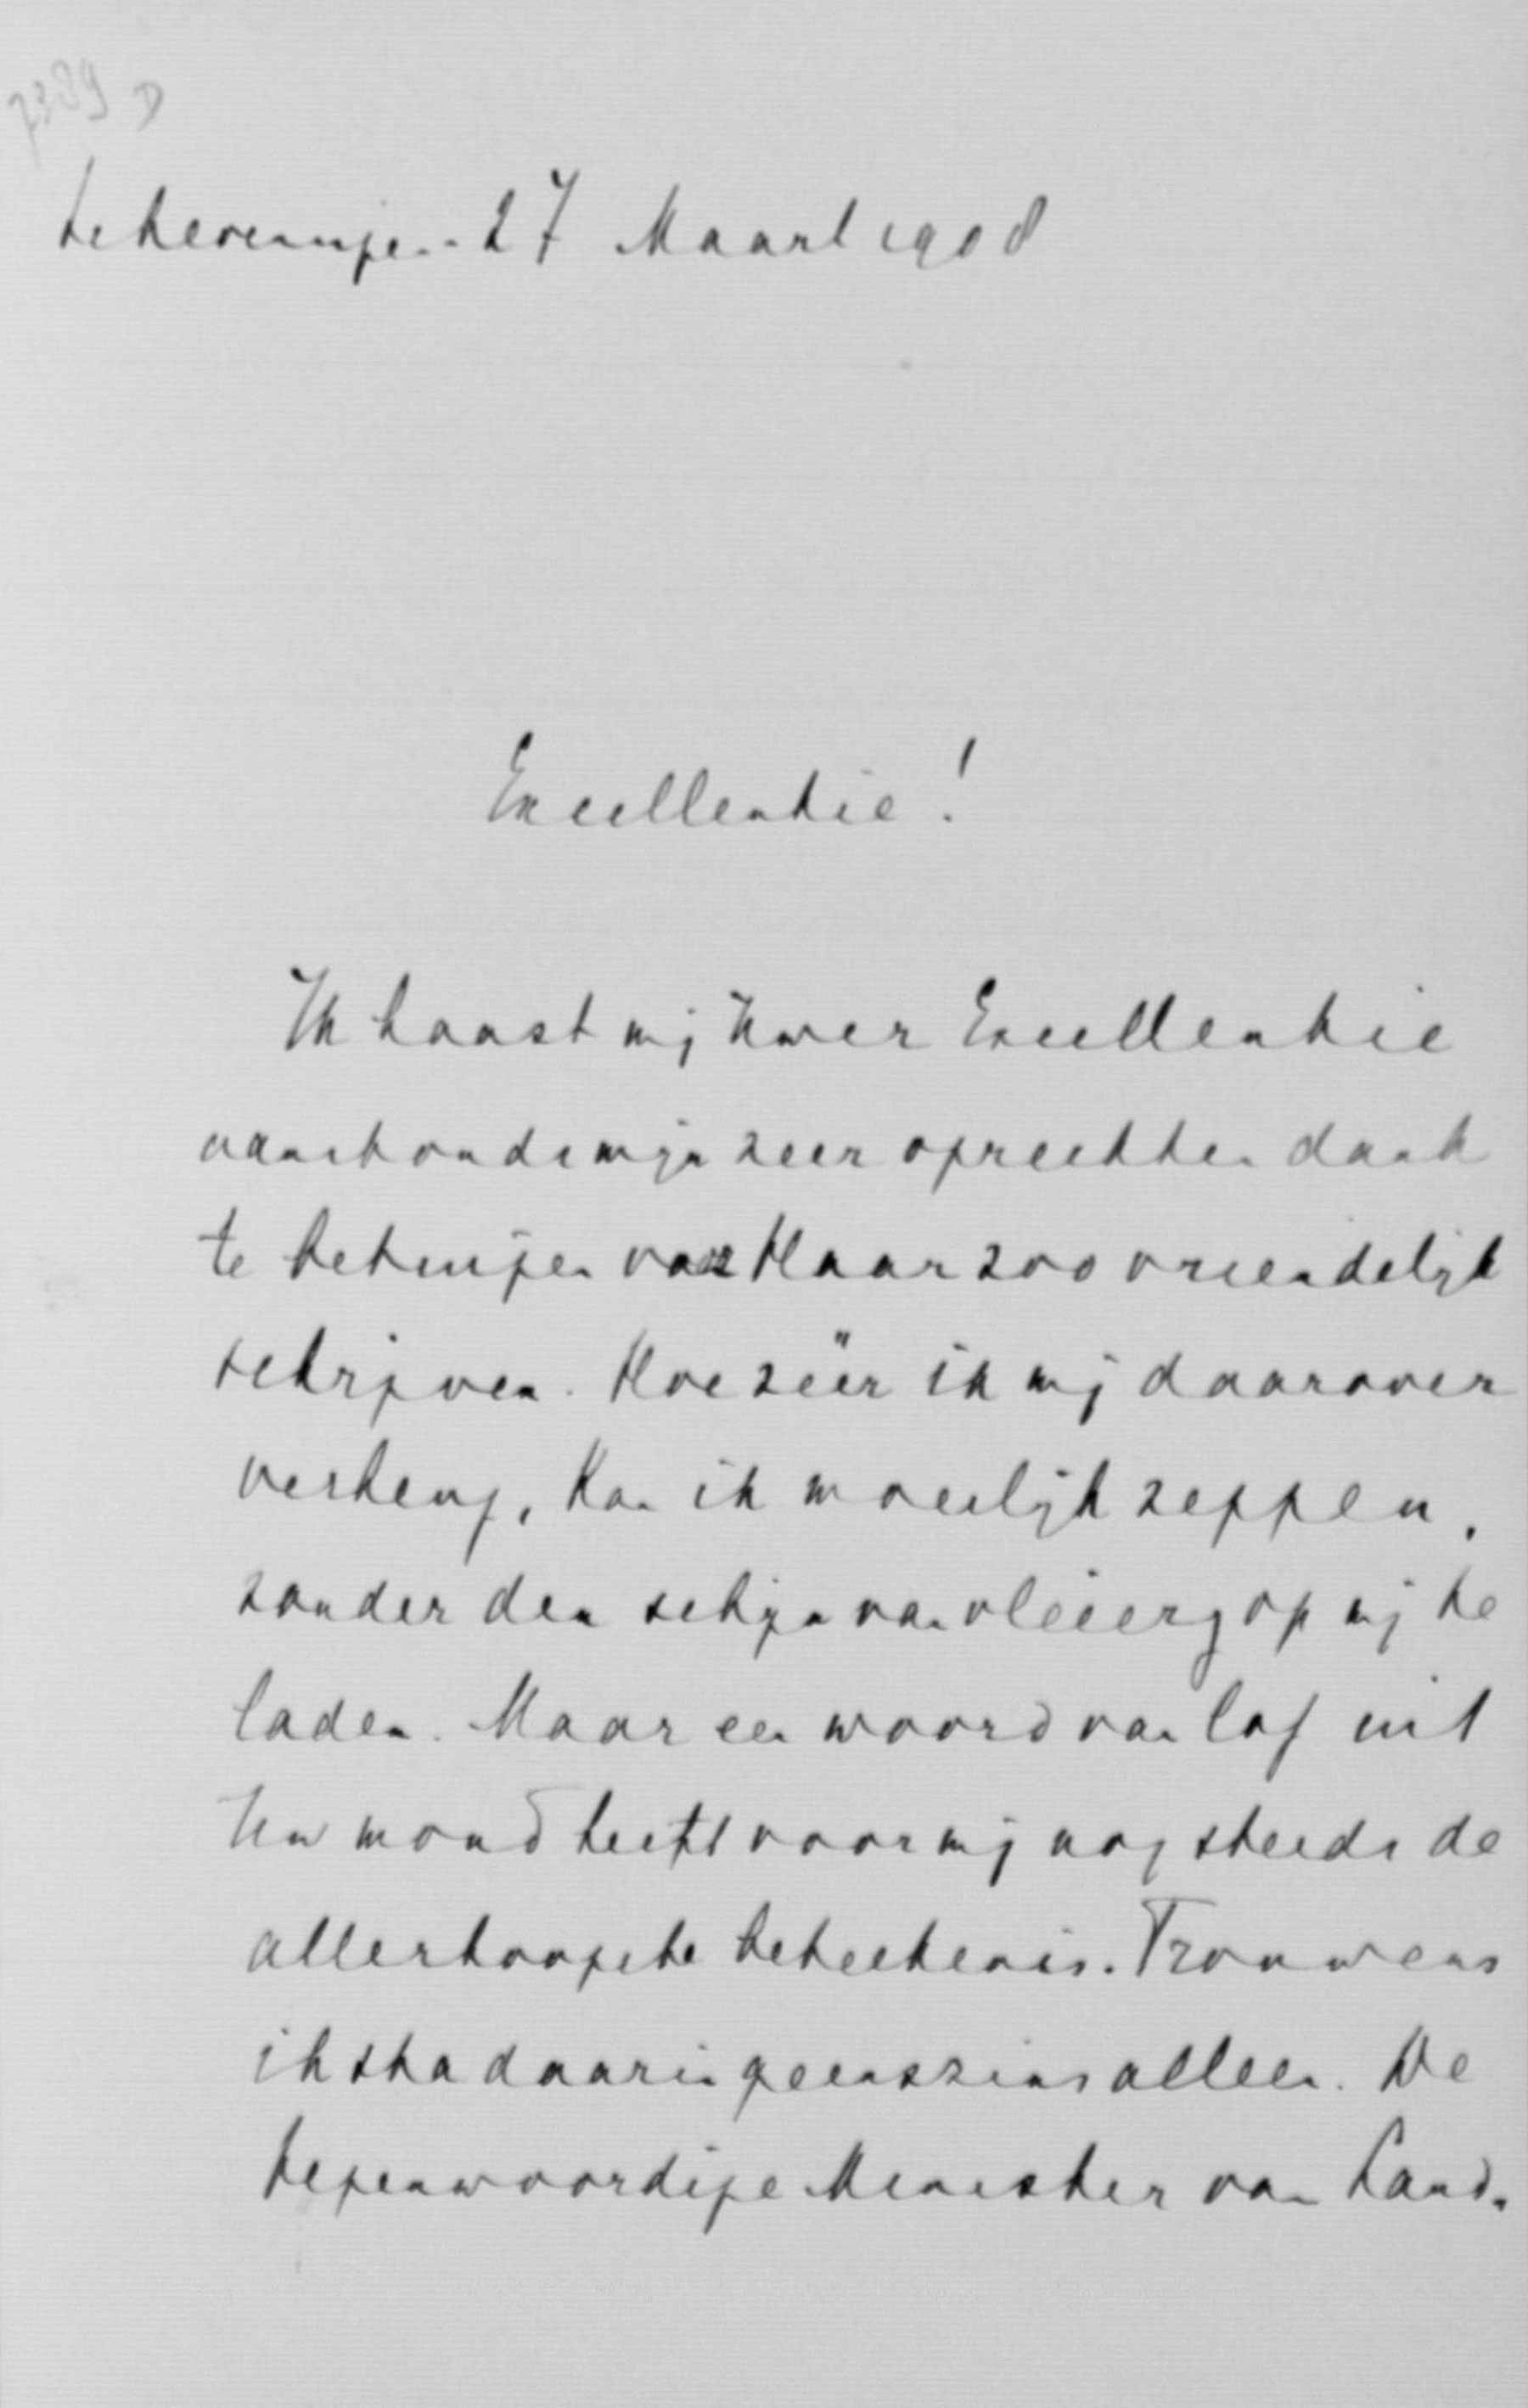 7389 D
Scheveningen 27 Maart 1908
Excellentie!
Ik haast mij Uwer Excellentie
aanstonds mijn zeer oprechten dank
te betuigen voor Haar zoo vriendelijk
schrijven. Hoe zéér ik mij daarover
verheug, kan ik moeilijk zeggen,
zonder den schijn van vleierij op mij te
laden. Maar een woord van lof uit
Uw mond heeft voor mij nog steeds de
allerhoogste beteekenis. Trouwens
ik sta daarin geenszins alleen. De
tegenwoordige Minister van Land-